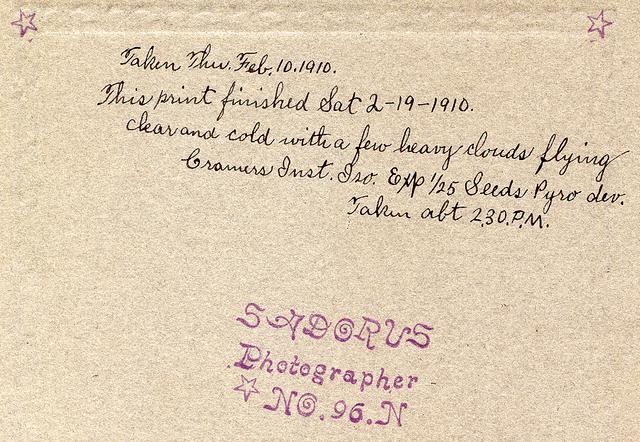 Taken Thu. Feb. 10. 1910.
This print finished Sat 2-19-1910.
clear and cold with a few heavy clouds flying
Cramers Inst. Iso. Exp 1/25 Seeds Pyro dev.
Taken abt 2.30. P.M.
SADORUS
Photographer
NO. 96. N